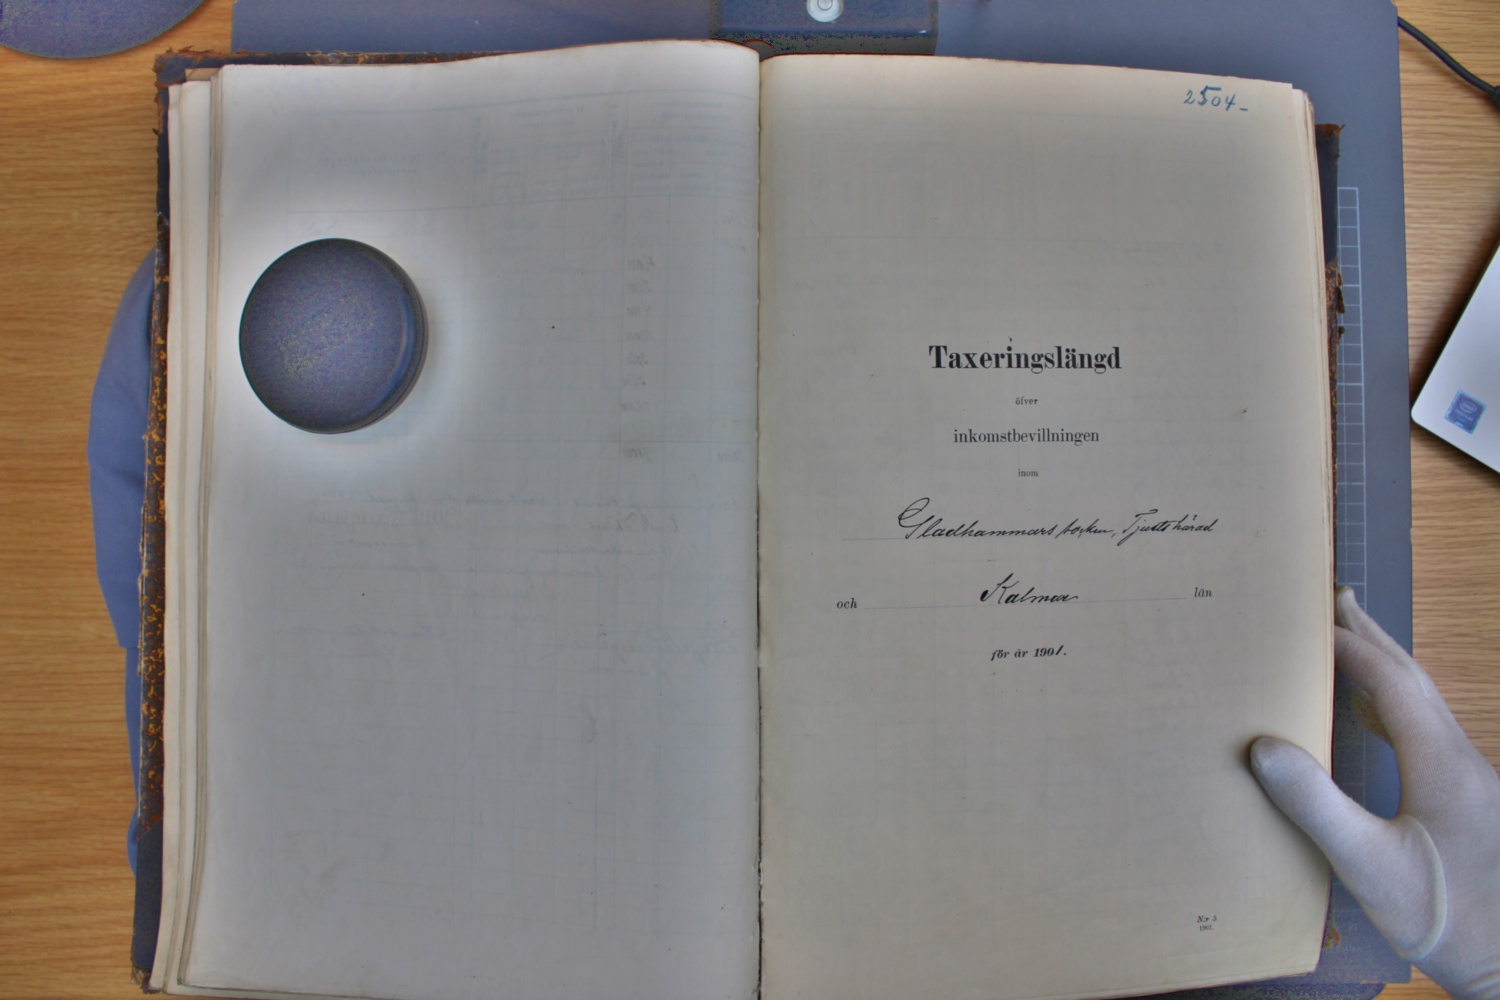 2504-
Taxeringslängd
öfver
inkomstbevillningen
inom
Gladhammars socken, Tjusts härad
och Kalmar län
för år 1901.
N:r 5
1901